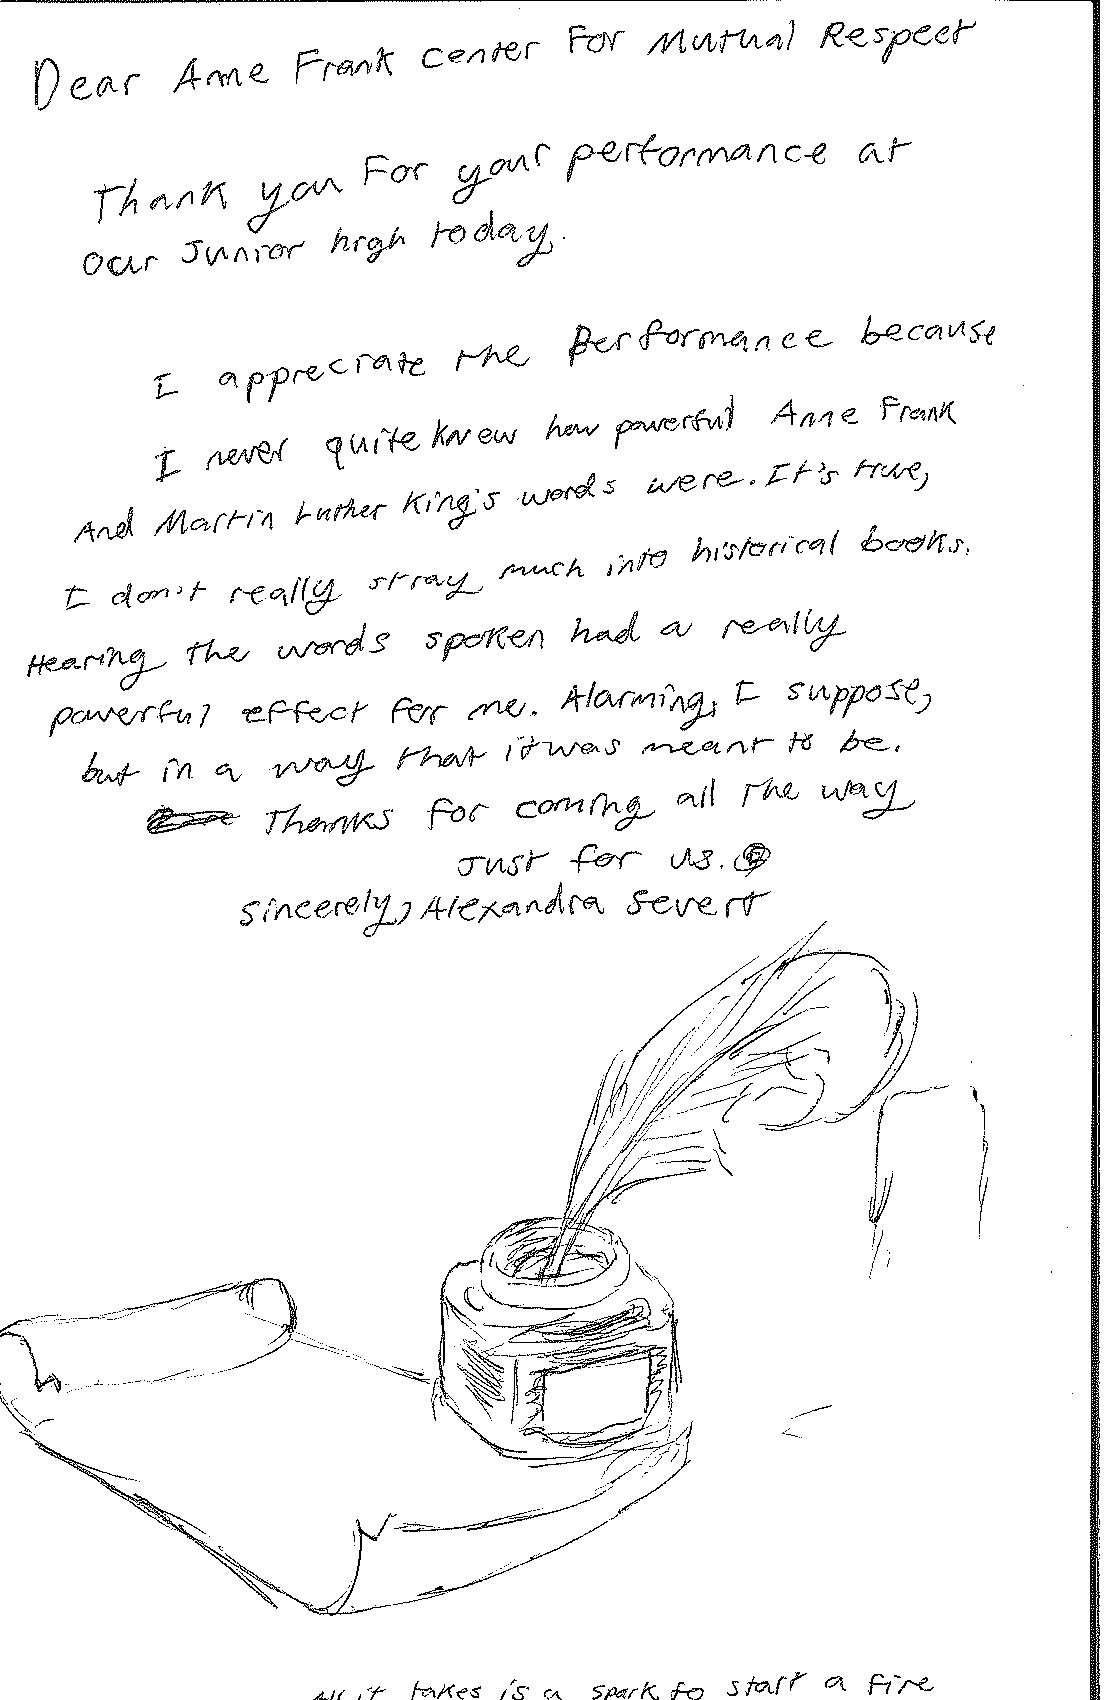 Dear Anne Frank Center For Mutual Respect
Thank you For your performance at
our Junior high today.
I appreciate the Performance because
I never quite knew how powerful Anne Frank
And Martin Luther King's words were. It's true,
I don't really stray much into historical books.
Hearing the words spoken had a really
powerful effect for me. Alarming, I suppose,
but in a way that it was meant to be.
Thanks for coming all the way
Just for us.
Sincerely, Alexandra Severt
All it takes is a spark to start a fire